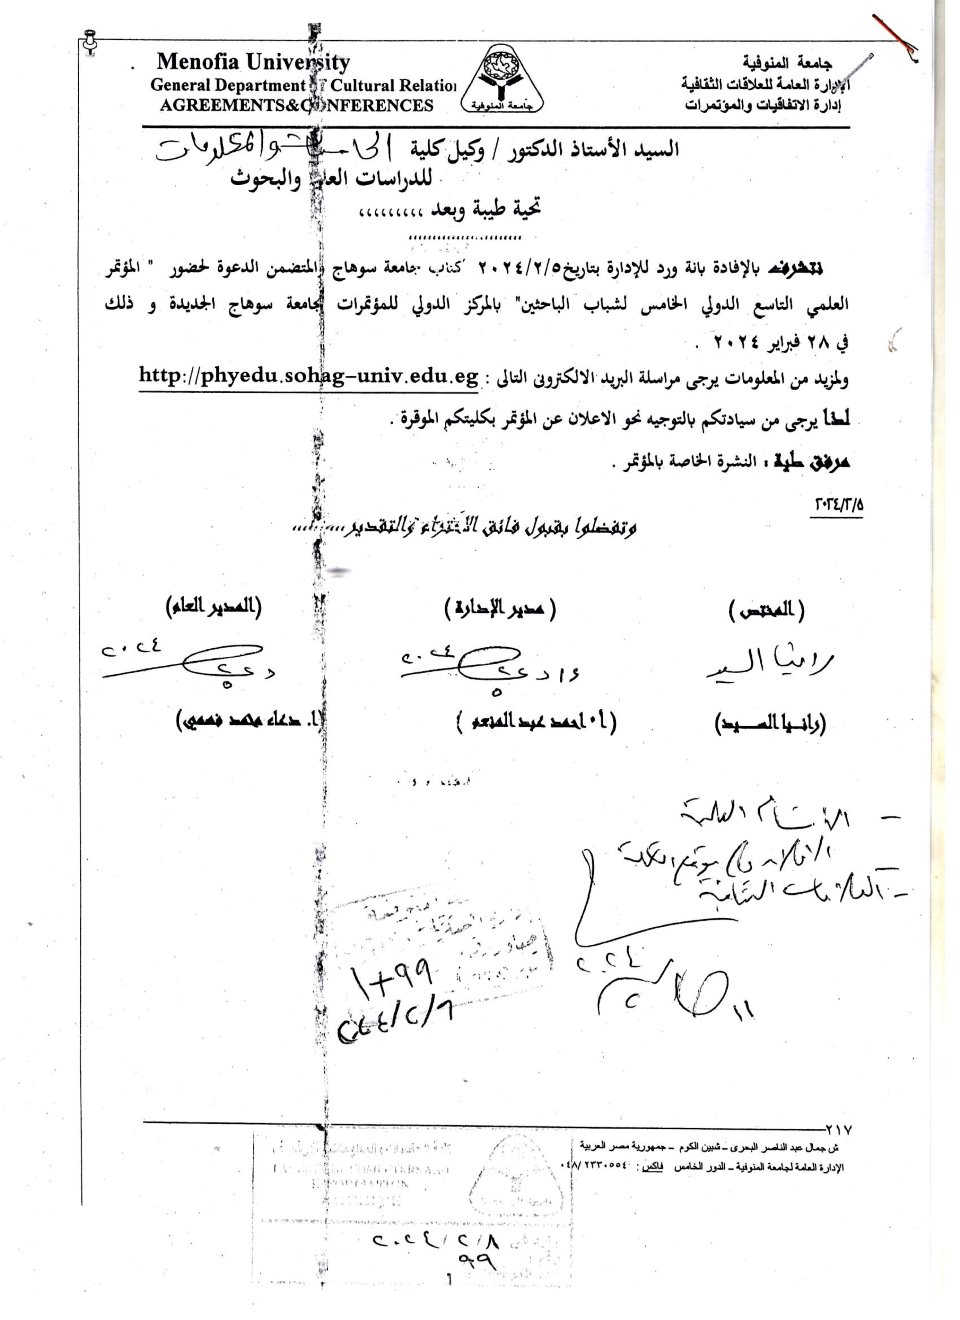 Menofia University
General Department of Cultural Relation
AGREEMENTS&CONFERENCES
جامعة المنوفية
جامعة المنوفية
الإدارة العامة للعلاقات الثقافية
إدارة الاتفاقيات والمؤتمرات
السيد الأستاذ الدكتور / وكيل كلية الحاسبات والمعلومات
للدراسات العليا والبحوث
تحية طيبة وبعد ,,,,,,,,,
نتشرف بالإفادة بانة ورد للإدارة بتاريخ ٢٠٢٤/٢/٥ كتاب جامعة سوهاج والمتضمن الدعوة لحضور " المؤتمر
العلمي التاسع الدولي الخامس لشباب الباحثين" بالمركز الدولي للمؤتمرات بجامعة سوهاج الجديدة و ذلك
في ٢٨ فبراير ٢٠٢٤ .
ولمزيد من المعلومات يرجى مراسلة البريد الالكترونى التالى : http://phyedu.sohag-univ.edu.eg
لذا يرجى من سيادتكم بالتوجيه نحو الاعلان عن المؤتمر بكليتكم الموقرة .
مرفق طية : النشرة الخاصة بالمؤتمر .
٢٠٢٤/٢/٥
وتفضلوا بقبول فائق الأحترام والتقدير,,,,,,,,
(المختص) (مدير الإدارة) (المدير العام)
رانيا السيد
٢٠٢٤ ٢٠٢٤
(رانيا السيد) (أ. احمد عبد المنعم) (ا. دعاء محمد فهمي)
- الأقسام العلمية
الاعلان على موقع الكلية
- العلاقات الثقافية
٢٠٢٤
١٠٩٩
٢٠٢٤/٢/٩
٢١٧
ش جمال عبد الناصر البحرى – شبين الكوم – جمهورية مصر العربية
الإدارة العامة لجامعة المنوفية – الدور الخامس فاكس : ٠٤٨/٢٢٣٠٥٥٤
٢٠٢٤/٢/٨
٩٩